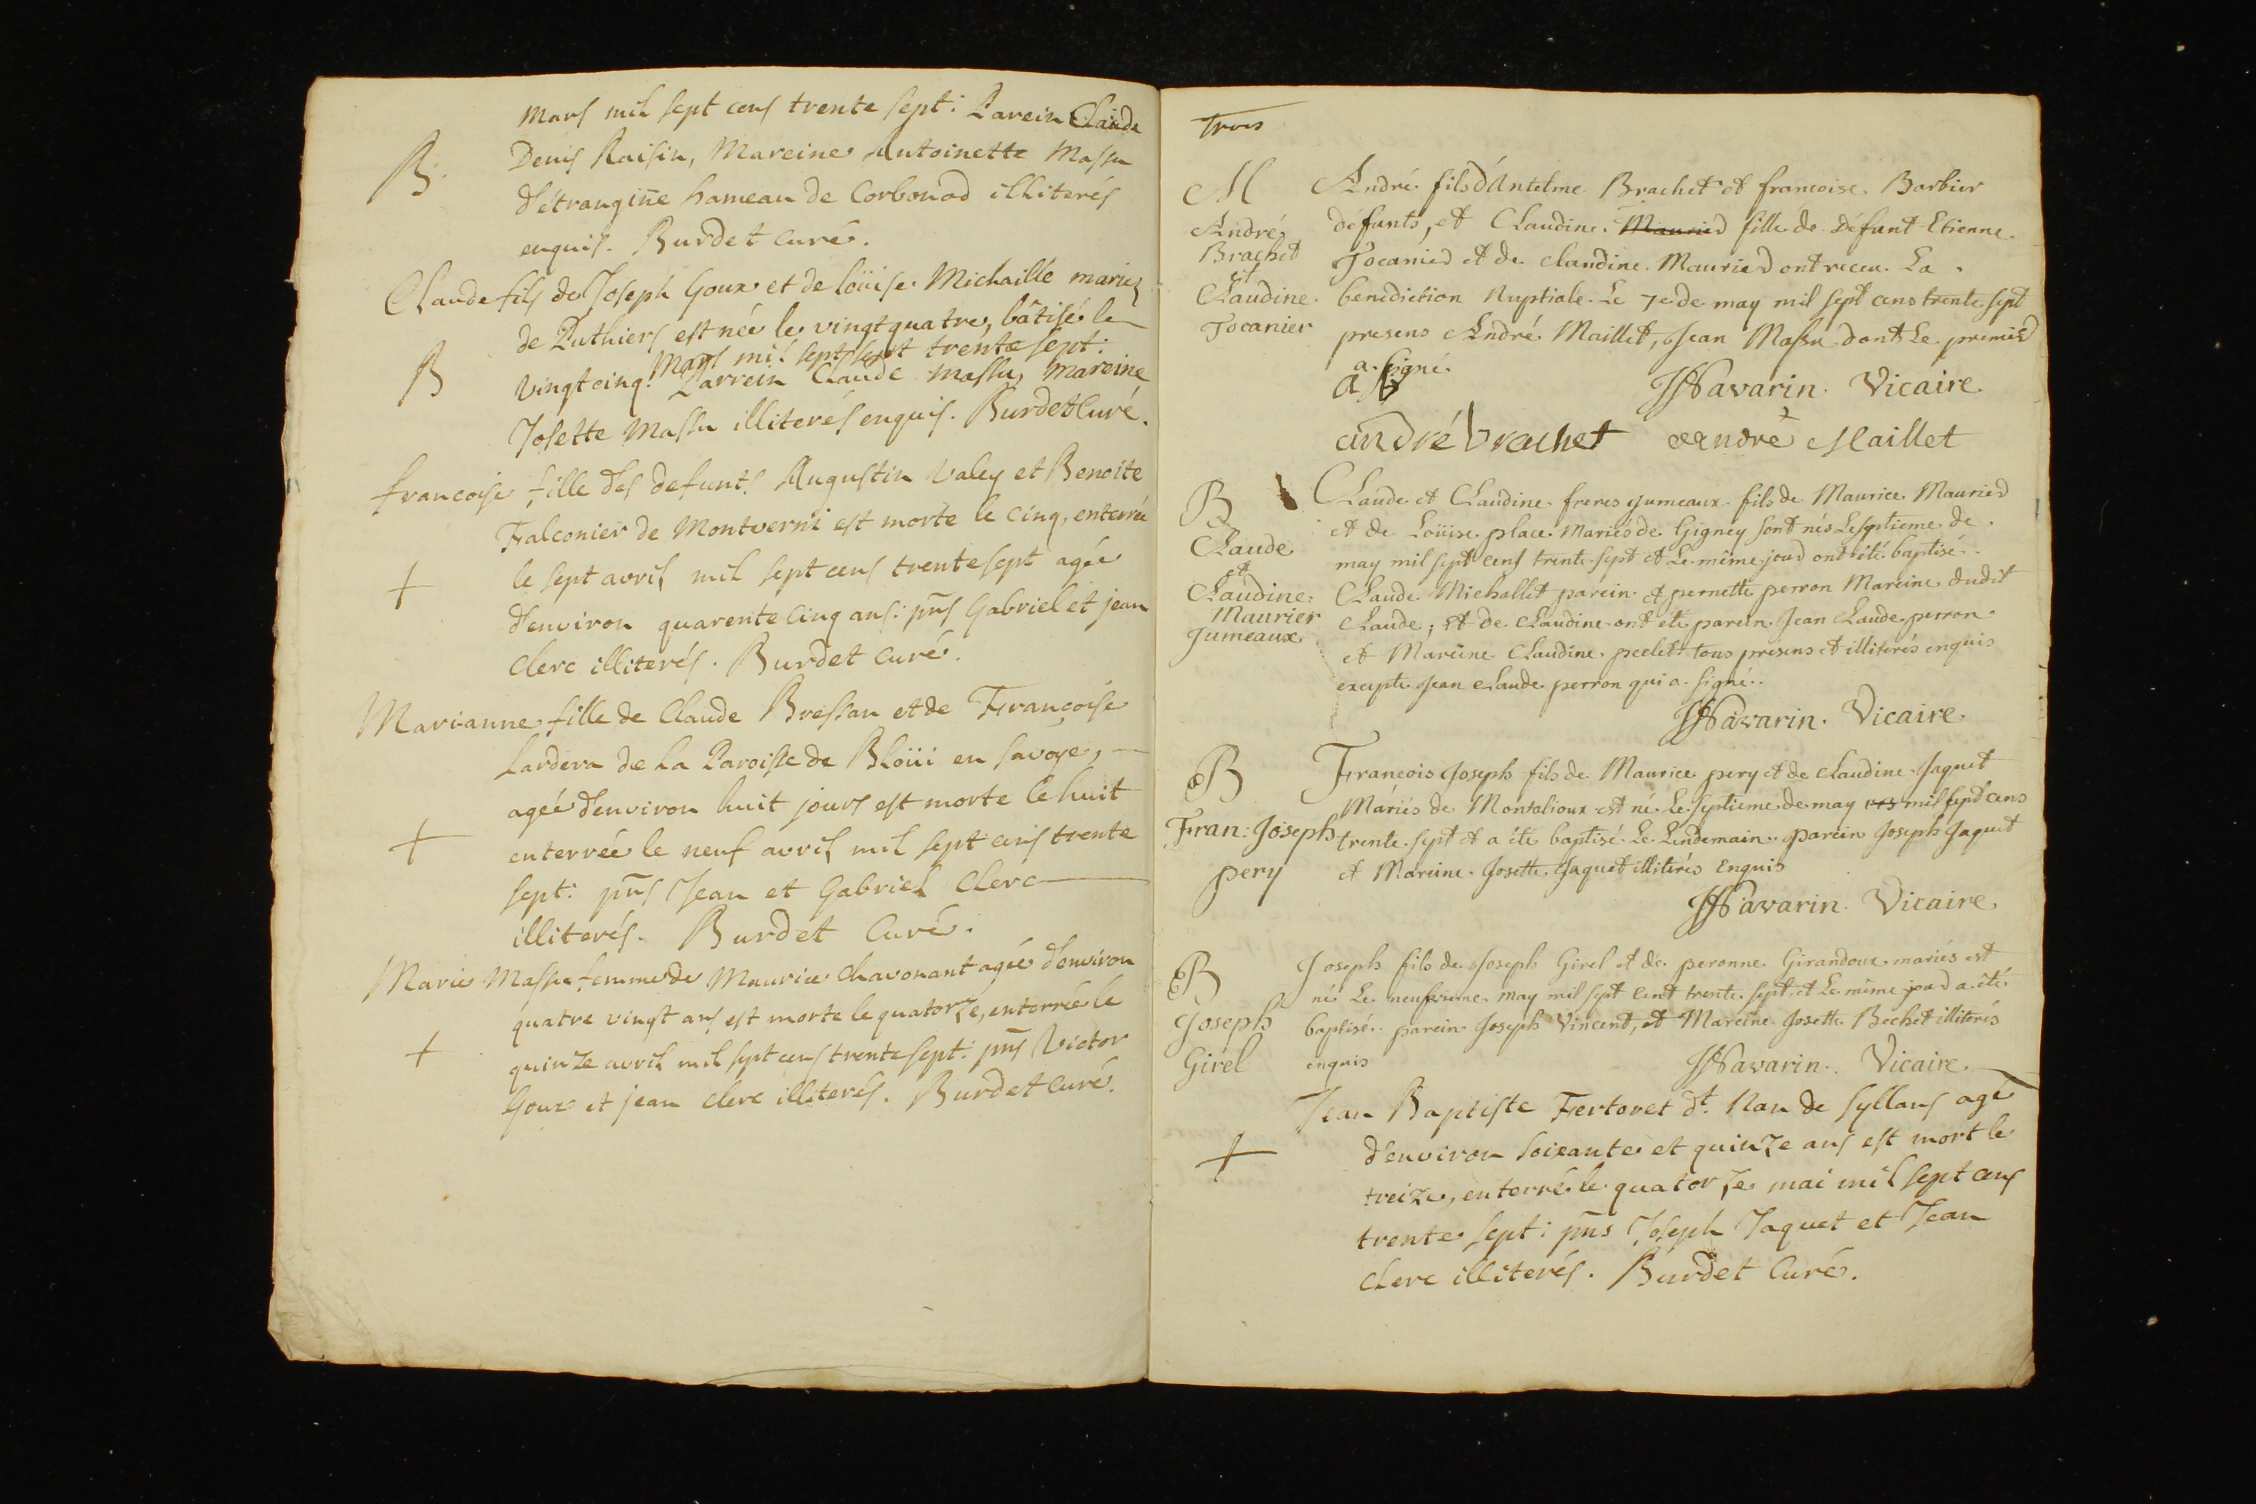 mars mil sept cens trente sept: Parein Claude
B. Denis Raisin, Mareine Antoinette Massu
d'étrangine hameau de Corbonod illiterés
enquis. Burdet curé.
Claude fils de Joseph Goux et de loüise Michaille mariez
de Puthiers est née le vingt quatre, bâtisé le
mars mil sept cent trente sept:
B vingt cinq. Parrein Claude Massu, Mareine
Josette Massu illiterés enquis. Burdet Curé.
francoise fille des defunts Augustin Valey et Benoite
Falconier de Montverni est morte le cinq, enterrée
+ le sept avril mil sept cens trente sept agée
d'environ quarente cinq ans: pns Gabriel et jean
Clerc illiterés. Burdet curé.
Marianne fille de Claude Bressan et de Françoise
Lardera de la Paroisse de Bloüi en Savoye,
agée d'environ huit jours est morte le huit
+ enterrée le neuf avril mil sept cens trente
sept: pns Jean et Gabriel Clerc
illiterés. Burdet Curé.
Marie Massu femme de Maurice Chavonant agée d'environ
quatre vingt ans est morte le quatorze, enterrée le
+ quinze avril mil sept cens trente sept: pns Victor
Goux et jean clerc illiterés. Burdet curé.
Trois
M
André
Brachet
et
Claudine
Tocanier
André fils d'Antelme Brachet et francoise Barbier
défunts, et Claudine Maurier fille de défunt Etienne
Tocanier et de claudine Maurier ont receu La
benediction Nuptiale Le 7e de may mil sept cens trente sept
presens André Maillet, Jean Massu dont Le premier
a signé.
JNavarin Vicaire
andré brachet andré Maillet
B
Claude
et
Claudine
Maurier
Jumeaux
Claude et Claudine freres jumeaux fils de Maurice Maurier
et de Loüise place Mariés de Gigney sont nés Le septieme de
may mil sept cens trente sept et Le même jour ont été baptisé
Claude Michallet parein et pernette perron Mareine dudit
Claude; et de Claudine ont été parein Jean Claude perron
et Mareine Claudine peclet tous presens et illiterés enquis
excepté Jean claude perron qui a signé.
JNavarin Vicaire
B
Fran: Joseph
pery
Francois Joseph fils de Maurice pery et de claudine Jaquet
Mariés de Montalioux est né Le septieme de may mil sept cens
trente sept et a été baptisé Le Lendemain. parein Joseph Jaquet
et Mareine Josette Jaquet illiterés Enquis
JNavarin Vicaire
B
Joseph
Girel
Joseph fils de Joseph Girel et de peronne Girandoux mariés est
né Le neufvieme may mil sept cent trente sept et Le même jour a été
baptisé. parein Joseph Vincent, et Mareine Josette Bechet illiterés
enquis JNavarin Vicaire
Jean Baptiste Fertoret dt. Nan de Syllans agé
+ d'environ soixante et quinze ans est mort le
treize, enterré le quatorze mai mil sept cens
trente sept: pns Joseph Jaquet et Jean
clerc illiterés. Burdet Curé.